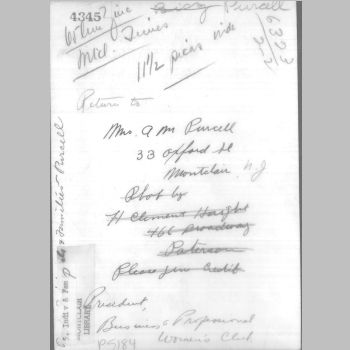 4345
Purcell
Mtl. Times
11 1/2 picas wide
6323
2-2
Return to
Mrs. A M Purcell
33 Oxford St
Montclair, N J
Phot by
H Clement Haight
466 Broadway
Paterson
Please give Credit
President,
Business & Professional
Women's Club
P5184
Families Purcell
MONTCLAIR
LIBRARY